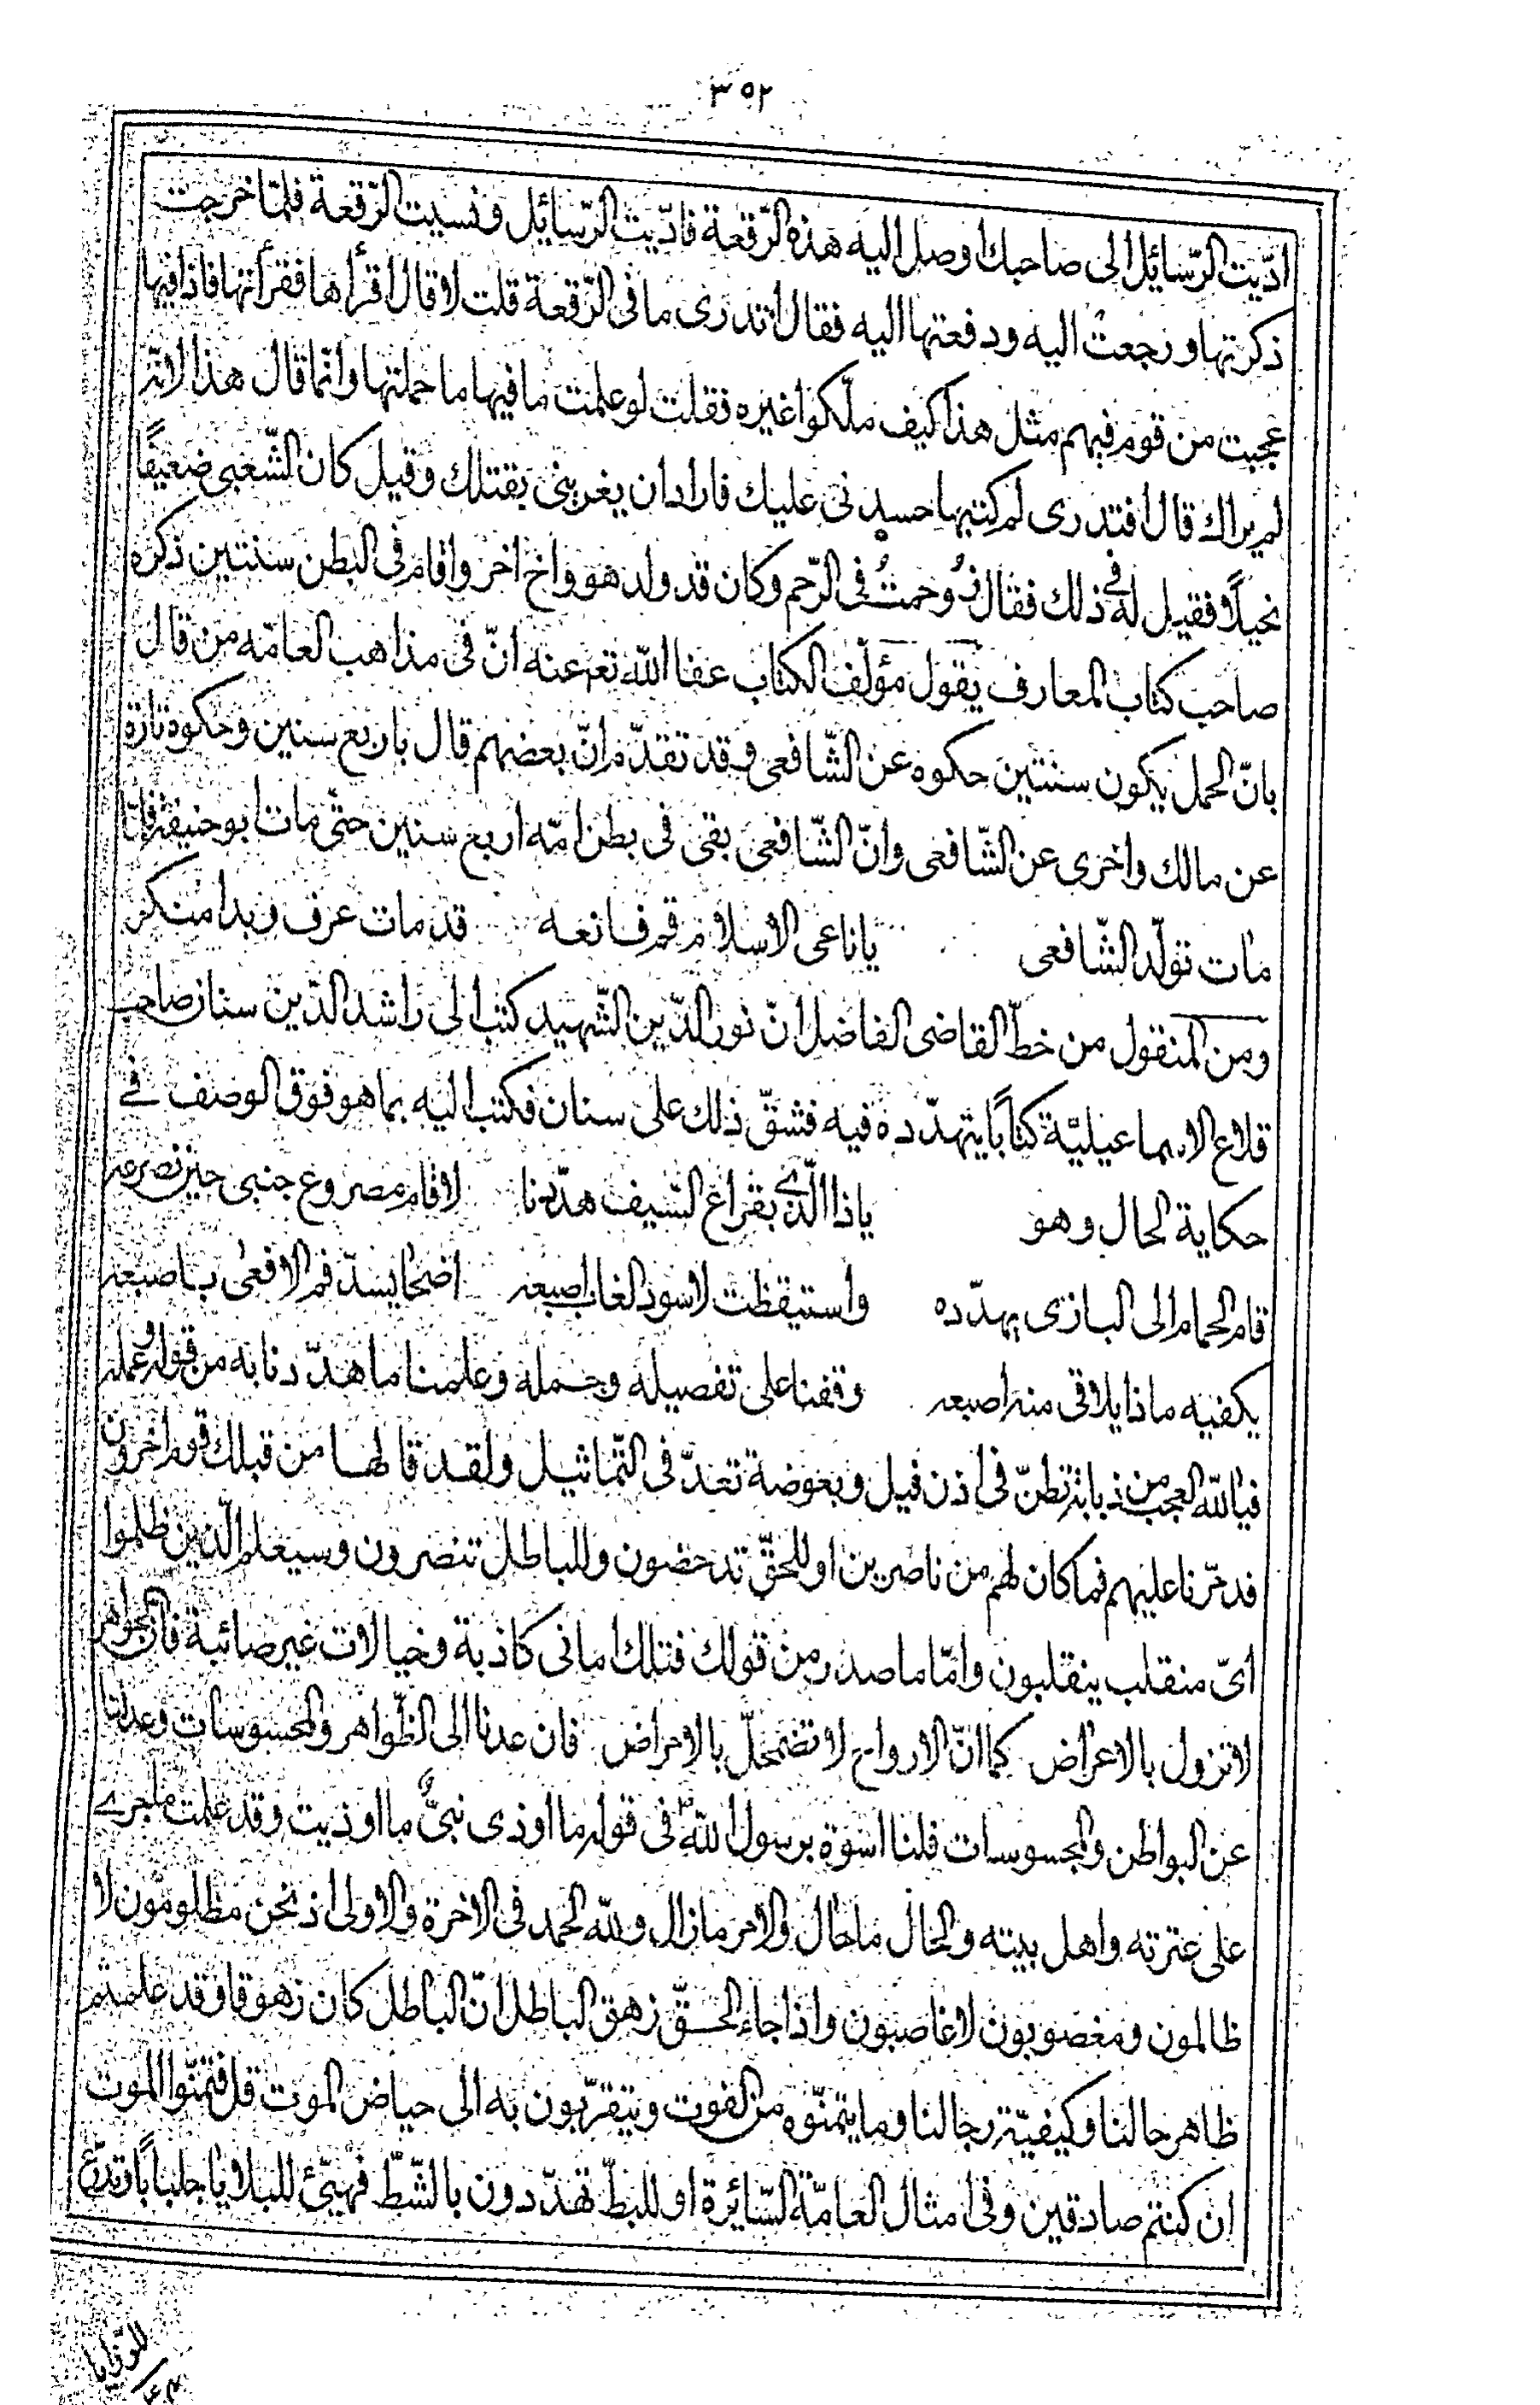 ٣٥٢
ادّيت الرّسائل الى صاحبك اوصل اليه هذه الرّقعة فادّيت الرّسائل و نسيت الرّقعة فلمّا خرجت
ذكرتها و رجعت اليه ودفعتها اليه فقال أتدرى ما فى الرّقعة قلت لا قال اقرأها فقرأتها فاذا فيها
عجبت من قوم فيهم مثل هذا كيف ملّكوا غيره فقلت لو علمت ما فيها ما حملتها وانّما قال هذا لانّه
لم يراك قال افتدرى لم كتبها حسدنى عليك فاراد ان يغرينى بقتلك وقيل كان الشّعبى ضعيفًا
نحيلًا فقيل له فى ذلك فقال زُوحمتُ فى الرّحم وكان قد ولد هو واخ اخر واقام فى البطن سنتين ذكره
صاحب كتاب المعارف يقول مؤلّف الكتاب عفا اللّه تعم عنه انّ فى مذاهب العامّه من قال
بانّ الحمل يكون سنتين حكوه عن الشّافعى و قد تقدّم انّ بعضهم قال باربع سنين و حكوه تارة
عن مالك واخرى عن الشّافعى وانّ الشّافعى بقى فى بطن امّه اربع سنين حتّى مات ابوحنيفة فلمّا
مات تولّد الشّافعى يا ناعى الاسلام قم فانعه قد مات عرف و بدا منكر
ومن المنقول من خطّ القاضى الفاضل انّ نور الدّين الشّهيد كتب الى راشد الدّين سنان صاحب
قلاع الاسماعيليّة كتابًا يتهدّده فيه فشقّ ذلك على سنان فكتب اليه بما هو فوق الوصف فى
حكاية الحال وهو ياذا الّذى بقراع السّيف هدّدنا لاقام مصروع جنبى حين تصرعه
قام الحمام الى البازى يهدّده واستيقظت لاسود الغاب اصبعه اضحا يسدّ فم الافعى باصبعه
يكفيه ماذا يلاقى منه اصبعه وقفنا على تفصيله وجمله وعلمنا ما هدّدنا به من قوله وعمله
فيا للّه العجب من ذبابة تطنّ فى اذن فيل و بعوضة تعدّ فى التّماثيل ولقد قالها من قبلك قوم اخرون
فدمّرنا عليهم فما كان لهم من ناصرين او للحقّ تدحضون وللباطل تنصرون وسيعلم الّذين ظلموا
اىّ منقلب ينقلبون وامّا ما صدر من قولك فتلك امانى كاذبة وخيالات غير صائبة فانّ الجواهر
لا تزول بالاعراض كما انّ الارواح لا تضمحلّ بالامراض فان عدنا الى الظّواهر والمحسوسات وعدلنا
عن البواطن والمحسوسات فلنا اسوة برسول اللّه ص فى قوله ما اوذى نبىٌّ ما اوذيت وقد علمت ماجرى
على عترته واهل بيته والحال ما حال والامر ما زال وللّه الحمد فى الاخرة والاولى اذ نحن مظلومون لا
ظالمون ومغصوبون لا غاصبون واذا جاء الحقّ زهق الباطل انّ الباطل كان زهوقا وقد علمتم
ظاهر حالنا وكيفيّة رجالنا وما يتمنّوه من الفوت ويتقرّبون به الى حياض الموت قل فتمنّوا الموت
ان كنتم صادقين وفى امثال العامّة السّائرة او للبطّ تهدّدون بالشّطّ فهيّئ للبلايا جلبابًا وتدرّع
للرّزايا